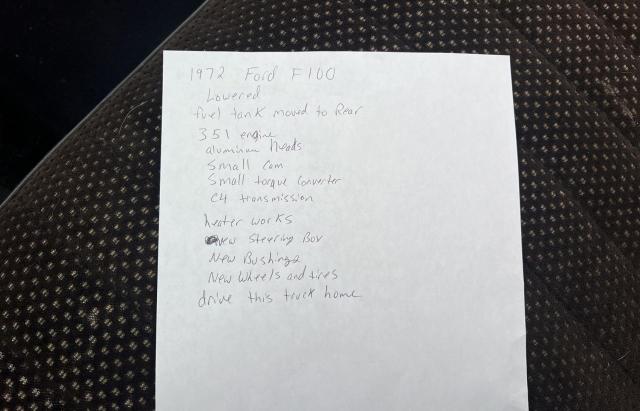 1972 Ford F100
Lowered
fuel tank moved to Rear
351 engine
aluminum heads
Small cam
Small torque converter
C4 transmission
heater works
New Steering Box
New Bushings
New Wheels and tires
drive this truck home